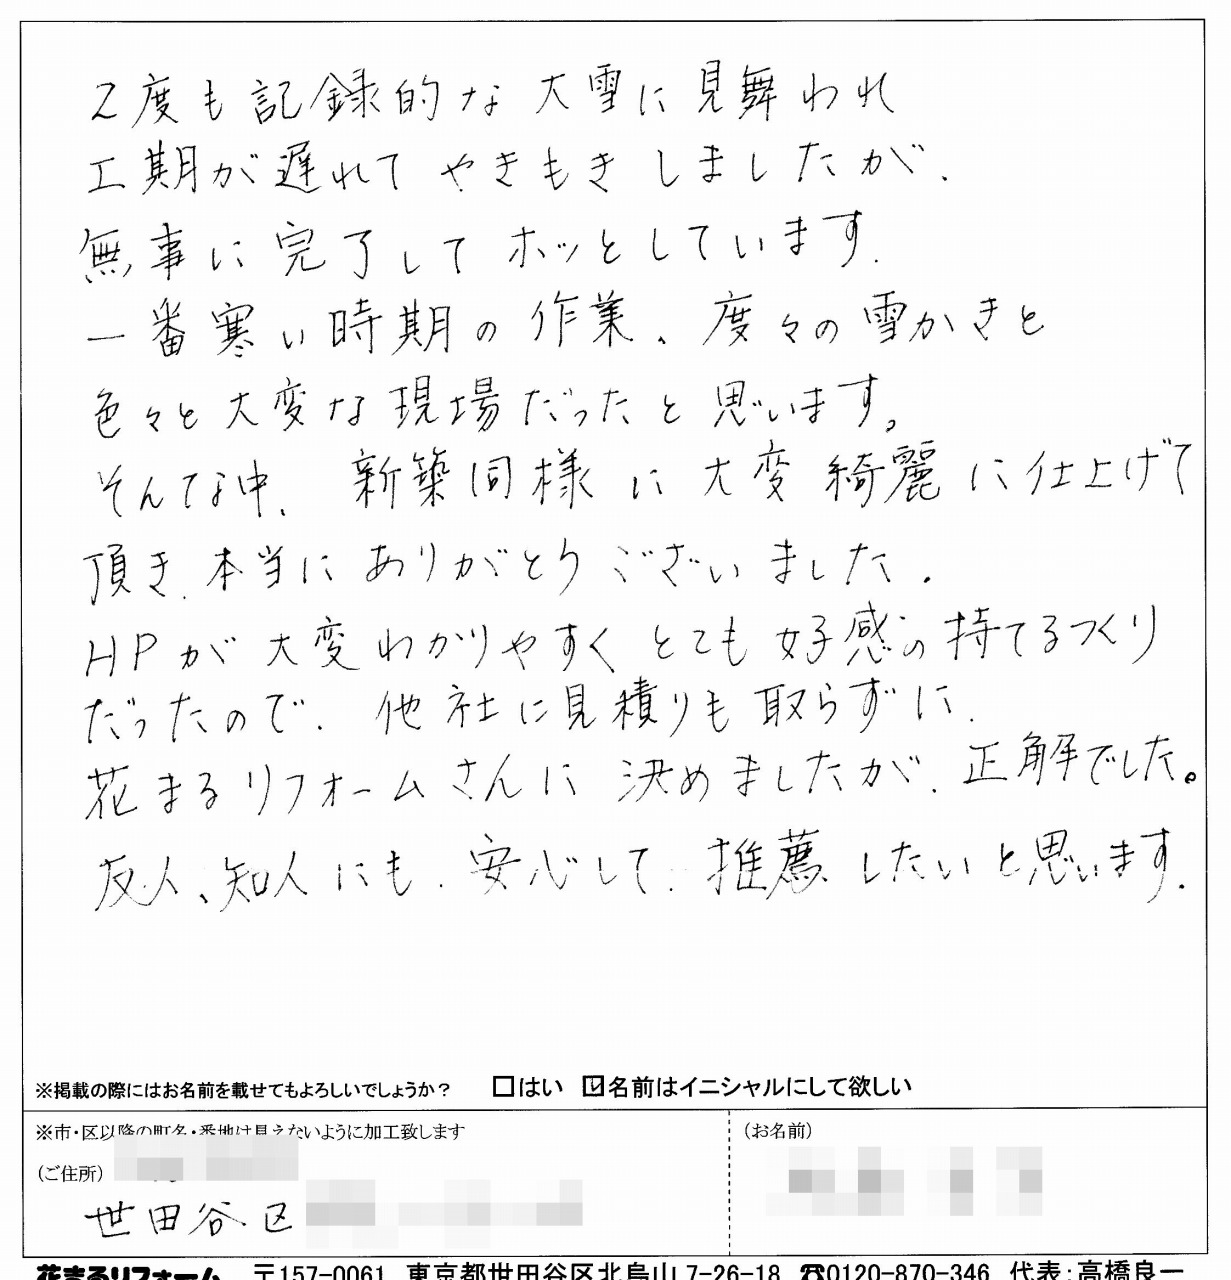 2度も記録的な大雪に見舞われ
工期が遅れてやきもきしましたが、
無事に完了してホッとしています。
一番寒い時期の作業、度々の雪かきと
色々と大変な現場だったと思います。
そんな中、新築同様に大変綺麗に仕上げて
頂き、本当にありがとうございました。
HPが大変わかりやすくとても好感の持てるつくり
だったので、他社に見積りも取らずに、
花まるリフォームさんに決めましたが、正解でした。
友人、知人にも、安心して、推薦したいと思います。
※掲載の際にはお名前を載せてもよろしいでしょうか? □はい ☑名前はイニシャルにして欲しい
※市・区以降の町名・番地は見えないように加工致します
(お名前)
(ご住所)
世田谷区
花まるリフォーム 〒157-0061 東京都世田谷区北烏山7-26-18 ☎0120-870-346 代表:高橋良一